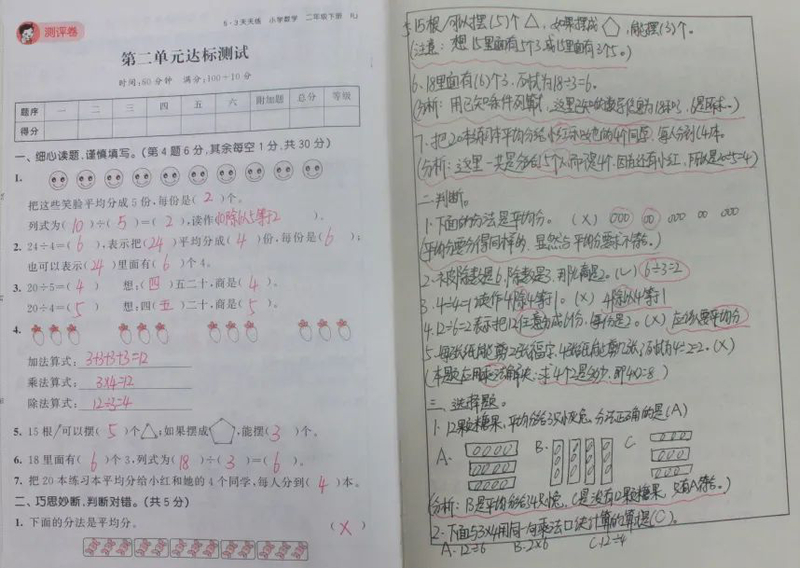 测评卷
5·3天天练 小学数学 二年级下册 RJ
第二单元达标测试
时间:80分钟 满分:100+10分
题序 一 二 三 四 五 六 附加题 总分 等级
得分
一、细心读题,谨慎填写。(第4题6分,其余每空1分,共30分)
1.
把这些笑脸平均分成5份,每份是( 2 )个。
列式为( 10 )÷( 5 )=( 2 ),读作(10除以5等于2)。
2. 24÷4=( 6 ),表示把( 24 )平均分成( 4 )份,每份是( 6 );
也可以表示( 24 )里面有( 6 )个4。
3. 20÷5=( 4 ) 想:( 四 )五二十,商是( 4 )。
20÷4=( 5 ) 想:四( 五 )二十,商是( 5 )。
4.
加法算式: 3+3+3+3=12
乘法算式: 3×4=12
除法算式: 12÷3=4
5. 15根/可以摆( 5 )个△;如果摆成⬠,能摆( 3 )个。
6. 18里面有( 6 )个3,列式为( 18 )÷( 3 )=( 6 )。
7. 把20本练习本平均分给小红和她的4个同学,每人分到( 4 )本。
二、巧思妙断,判断对错。(共5分)
1. 下面的分法是平均分。 ( × )
5.15根/可以摆(5)个△,如果摆成⬠,能摆(3)个。
(注意:想15里面有5个3或15里面有3个5。)
6、18里面有(6)个3,列式为18÷3=6。
(分析:用已知条件列算式,这里已知的数字信息为18和3,6是所求。)
7.把20本练习本平均分给小红和她的4个同学,每人分到(4)本。
(分析:这里一共是分给5个人,而不是4个,因为还有小红,所以是20÷5=4)
二.判断。
1.下面的分法是平均分。(×)
(平均分要分得同样多,显然与平均分要求不符。)
2.被除数是6,除数是3,那么商是2。(√) 6÷3=2
3.4÷4=1读作4除4等于1。(×) 4除以4等于1
4.12÷6=2表示把12任意分成6份,每份是2。(×) 应该要平均分
(本题应用乘法解决:求4个2是多少,即4×2=8)
三、选择题。
1.12颗糖果,平均分给3只小兔,分法正确的是(A)
A. B. C.
(分析:B是平均分给4只小兔,C是没有12颗糖果,只有A符合。)
2.下面与3×4用同一句乘法口诀计算的算式是(C)。
A.12÷6 B.2×6 C.12÷4